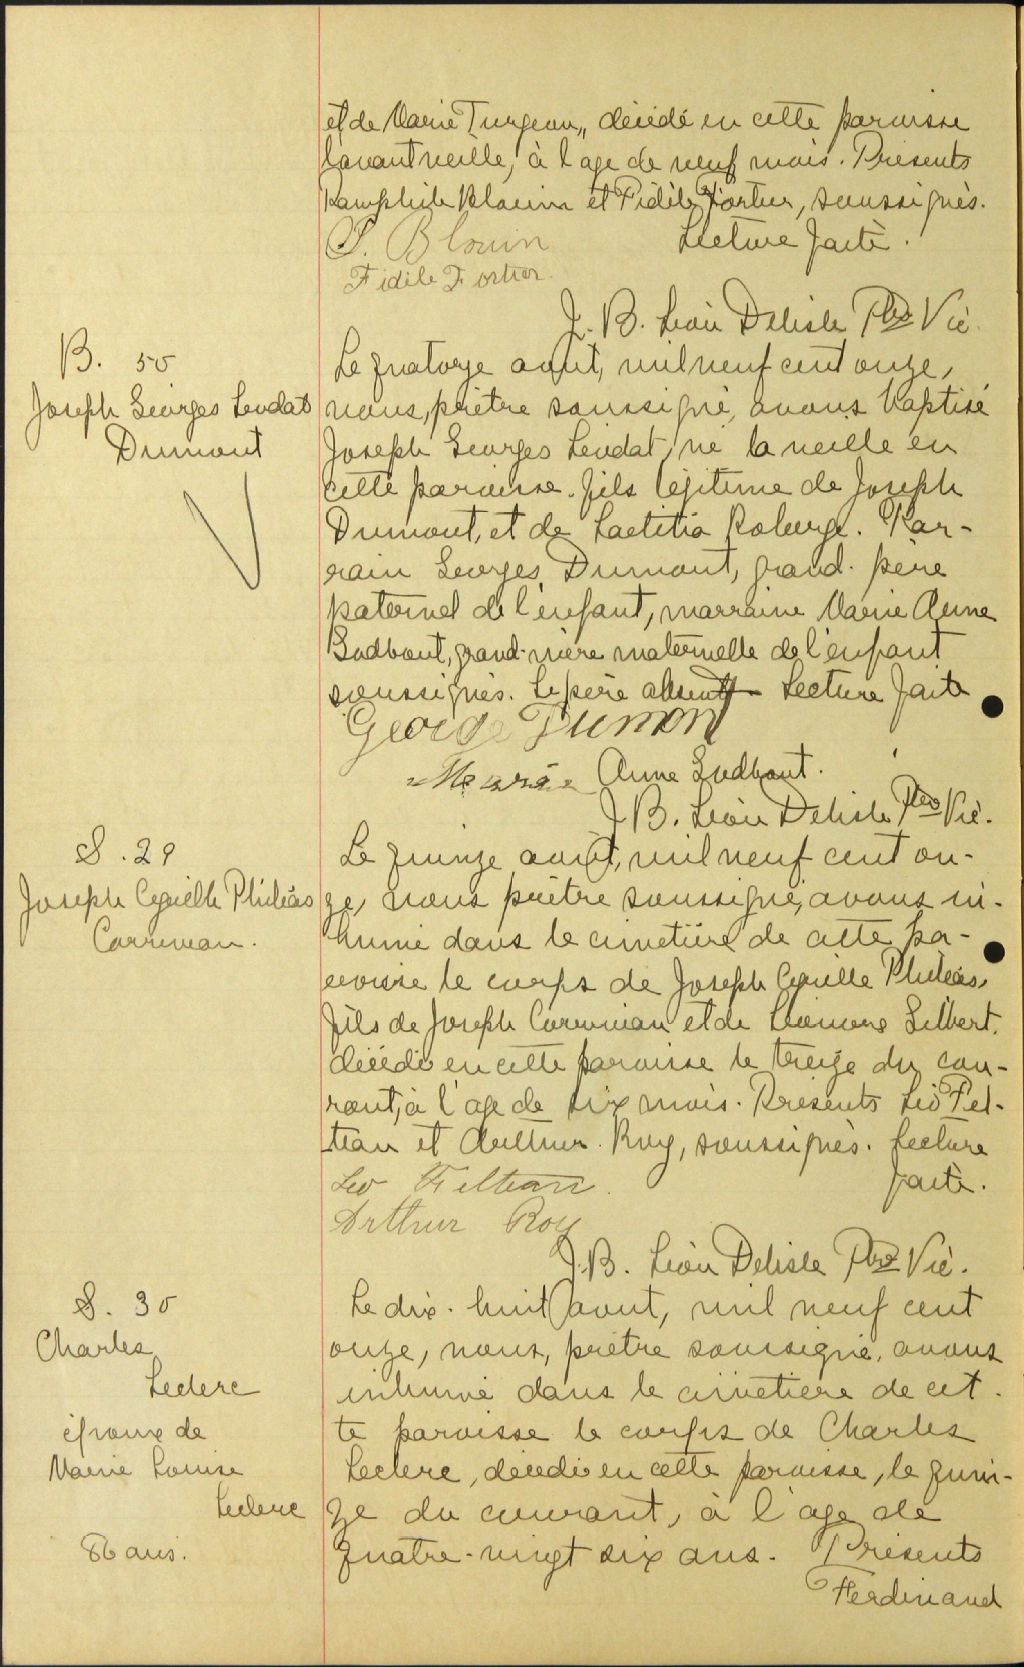 et de Marie Turgeon, décédé en cette paroisse
l'avant veille, à l'age de neuf mois. Présents
Pamphile Blouin et Fidèle Fortier, soussignés.
P. Blouin Lecture faite.
Fidèle Fortier
J. B. Léon Delisle Ptre Vic.
B. 50
Joseph Georges Léodat
Dumont
Le quatorze août, mil neuf cent onze,
nous, prêtre soussigné, avons baptisé
Joseph Georges Léodat, né la veille en
cette paroisse. fils légitime de Joseph
Dumont, et de Laetitia Roberge. Par-
rain Georges Dumont, grand-père
paternel de l'enfant, marraine Marie Anne
Godbout, grand-mère maternelle de l'enfant
soussignés. Le père absent Lecture faite
George Dumont
Marie Anne Godbout.
J. B. Léon Delisle Ptre Vic.
S. 29
Joseph Cyrille Philéas
Corriveau.
Le quinze août, mil neuf cent on-
ze, nous prêtre soussigné, avons in-
humé dans le cimetière de cette pa-
roisse le corps de Joseph Cyrille Philéas,
fils de Joseph Corriveau et de Gilbert.
décédé en cette paroisse le treize du cou-
rant, à l'age de six mois. Présents Léo Fel-
teau et Arthur Roy, soussignés. Lecture
faite.
Leo Felteau
Arthur Roy
J. B. Léon Delisle Ptre Vic.
S. 30
Charles
Leclerc
époux de
Marie Louise
Leclerc
86 ans.
Le dix-huit août, mil neuf cent
onze, nous, prêtre soussigné, avons
inhumé dans le cimetière de cet-
te paroisse le corps de Charles
Leclerc, décédé en cette paroisse, le quin-
ze du courant, à l'age de
quatre-vingt six ans. Présents
Ferdinand